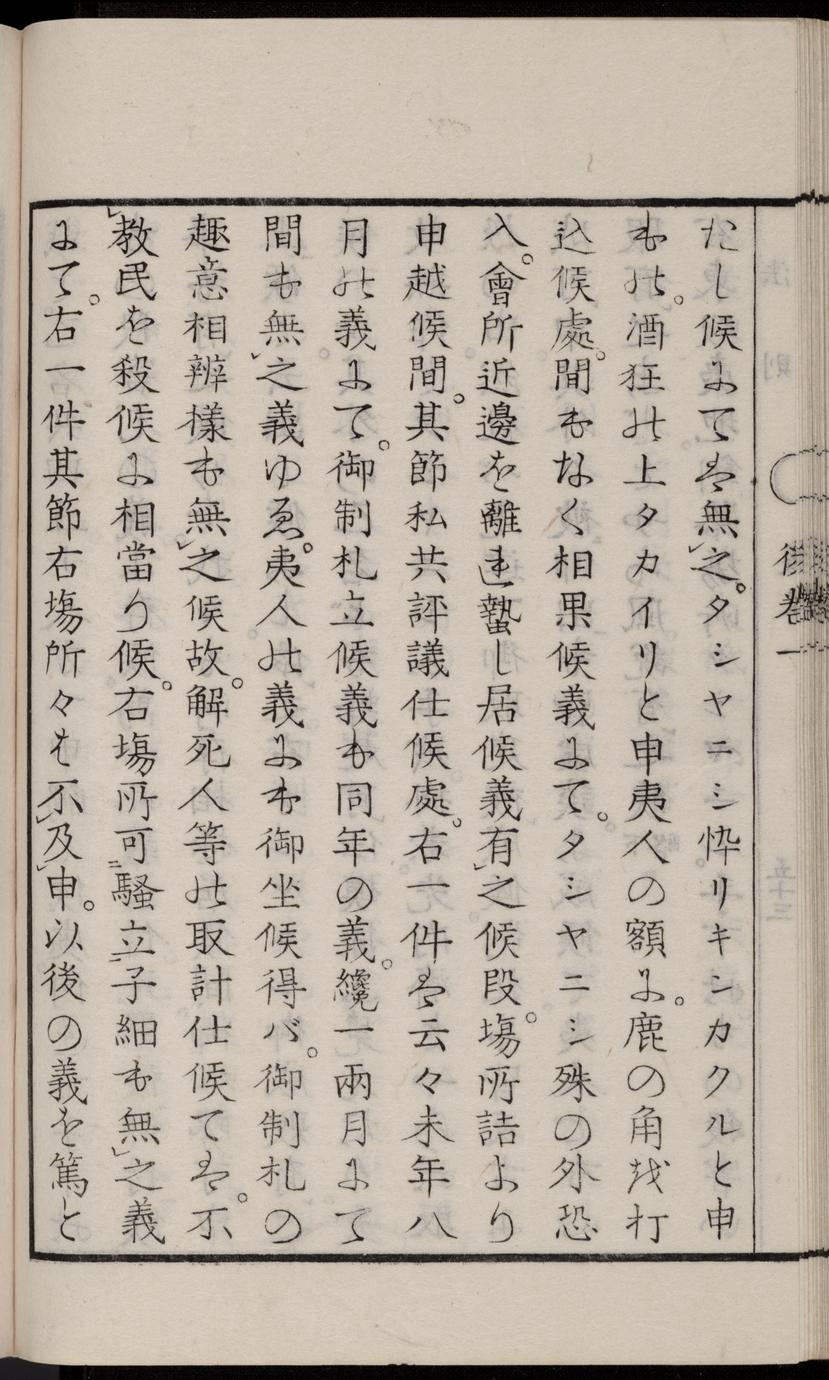 たし候にてハ無レ之。タシヤニシ忰リキンカクルと申
もの。酒狂の上タカイリと申夷人の額に。鹿の角を打
込候處。間もなく相果候義にて。タシヤニシ殊の外恐
入。會所近邊を離れ蟄し居候義有レ之候段。塲所詰より
申越候間。其節私共評議仕候處。右一件ハ云々未年八
月の義にて。御制札立候義も同年の義。纔一兩月にて
間も無レ之義ゆゑ。夷人の義にも御坐候得バ。御制札の
趣意相辨樣も無レ之候故。解死人等の取計仕候てハ。不
レ教民を殺候に相當り候。右塲所可二騷立一子細も無レ之義
にて。右一件其節右塲所々は不レ及レ申。以後の義を篤と
後卷一